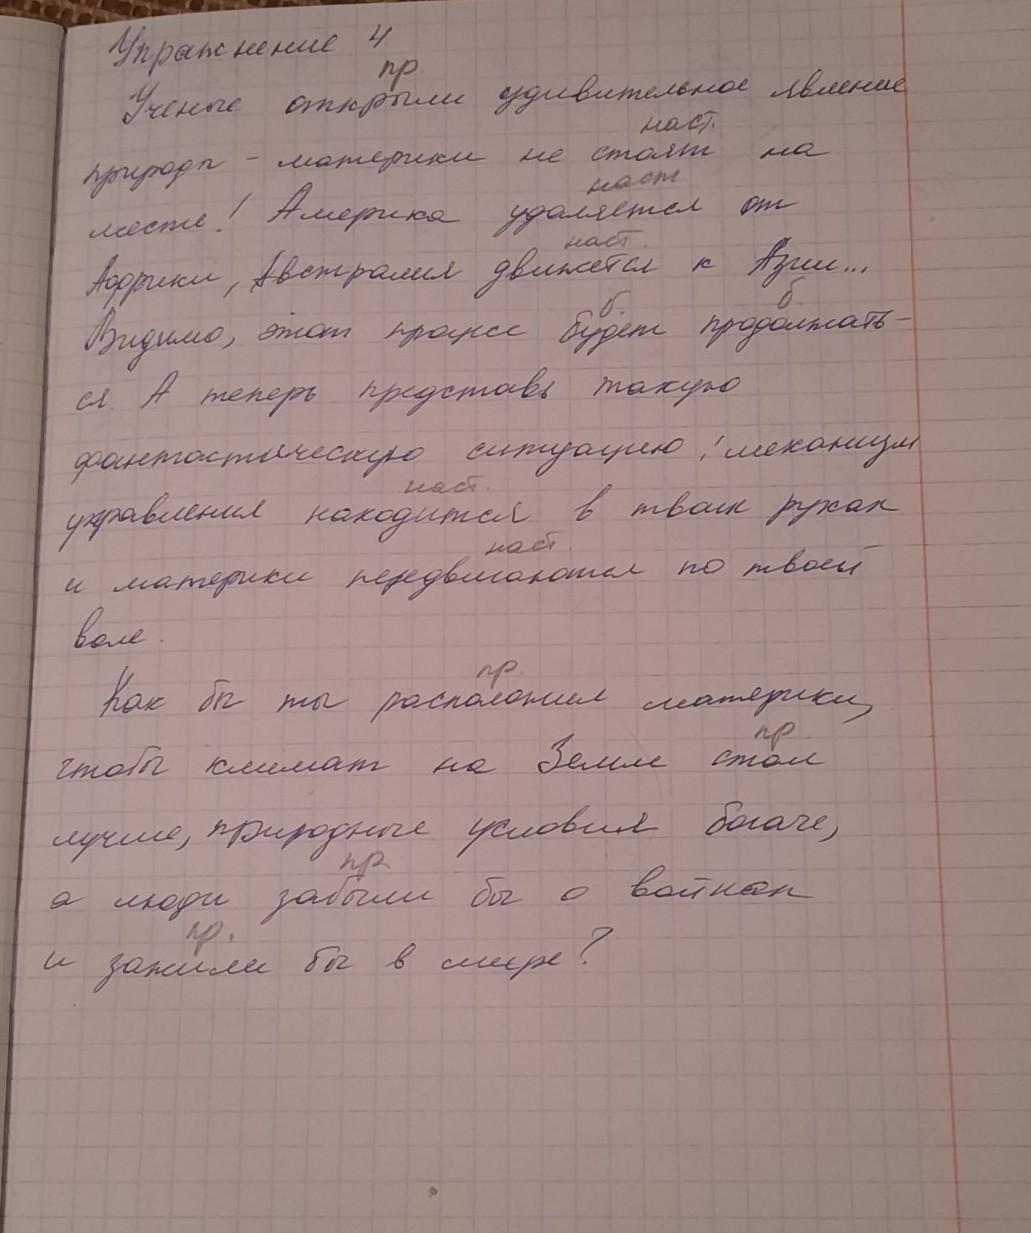 Упражнение 4
пр.
Ученые открыли удивительное явление
наст.
природы - материки не стоят на
наст
месте! Америка удаляется от
наст.
Африки, Австралия движется к Азии...
б. б.
Видимо, этот процесс будет продолжать-
ся. А теперь представь такую
фантастическую ситуацию: механизм
наст.
управления находится в твоих руках
наст.
и материки передвигаются по твоей
воле.
пр.
Как бы ты расположил материки,
пр.
чтобы климат на Земле стал
лучше, природные условия богаче,
пр.
а люди забыли бы о войнах
пр.
и зажили бы в мире?